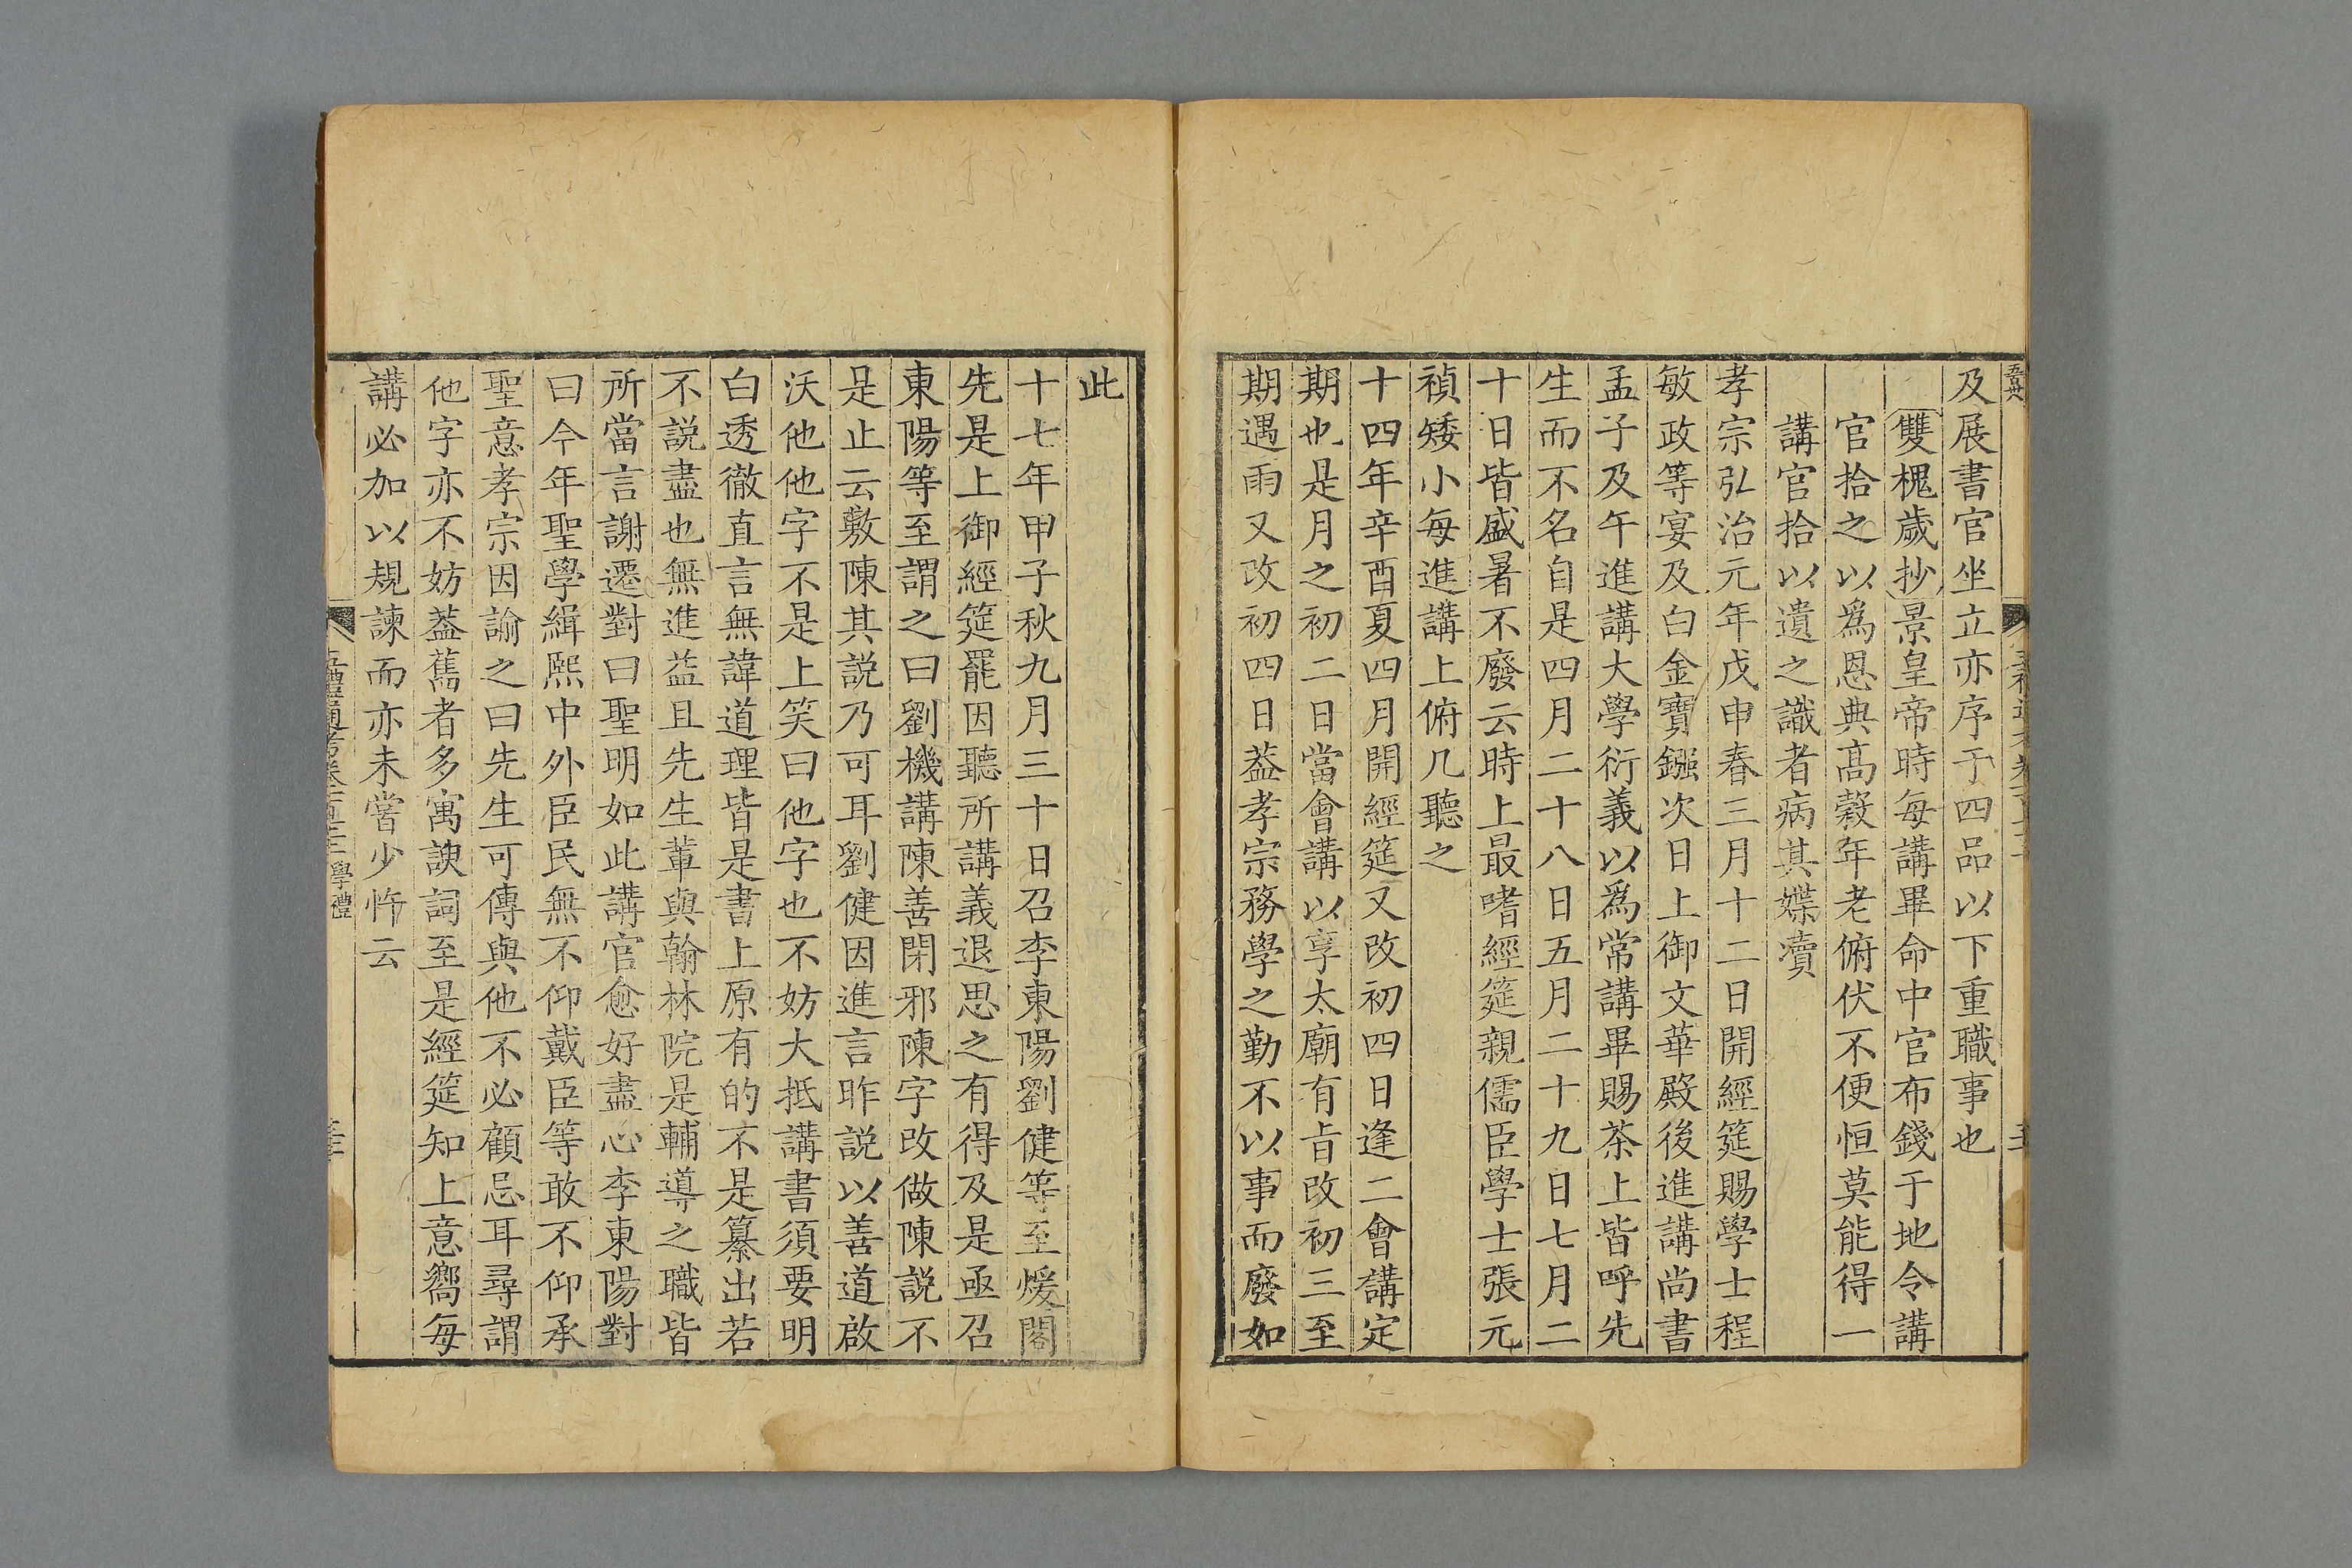 及展書官坐立亦序于四品以下重職事也
雙槐歲抄景皇帝時每講畢命中官布錢于地令講
官拾之以爲恩典高穀年老俯伏不便恒莫能得一
講官拾以遺之識者病其媟瀆
孝宗弘治元年戊申春三月十二日開經筵賜學士程
敏政等宴及白金寶鏹次日上御文華殿後進講尚書
孟子及午進講大學衍義以爲常講畢賜茶上皆呼先
生而不名自是四月二十八日五月二十九日七月二
十日皆盛暑不廢云時上最嗜經筵親儒臣學士張元
禎矮小每進講上俯几聽之
十四年辛酉夏四月開經筵又改初四日逢二會講定
期也是月之初二日當會講以享太廟有旨改初三至
期遇雨又改初四日葢孝宗務學之勤不以事而廢如
此
十七年甲子秋九月三十日召李東陽劉健等至煖閣
先是上御經筵罷因聽所講義退思之有得及是亟召
東陽等至謂之曰劉機講陳善閉邪陳字改做陳說不
是止云敷陳其說乃可耳劉健因進言昨說以善道啟
沃他他字不是上笑曰他字也不妨大抵講書須要明
白透徹直言無諱道理皆是書上原有的不是纂出若
不說盡也無進益且先生輩與翰林院是輔導之職皆
所當言謝遷對曰聖明如此講官愈好盡心李東陽對
曰今年聖學緝熙中外臣民無不仰戴臣等敢不仰承
聖意孝宗因諭之曰先生可傳與他不必顧忌耳尋謂
他字亦不妨葢舊者多寓諛詞至是經筵知上意嚮每
講必加以規諫而亦未嘗少忤云
學禮